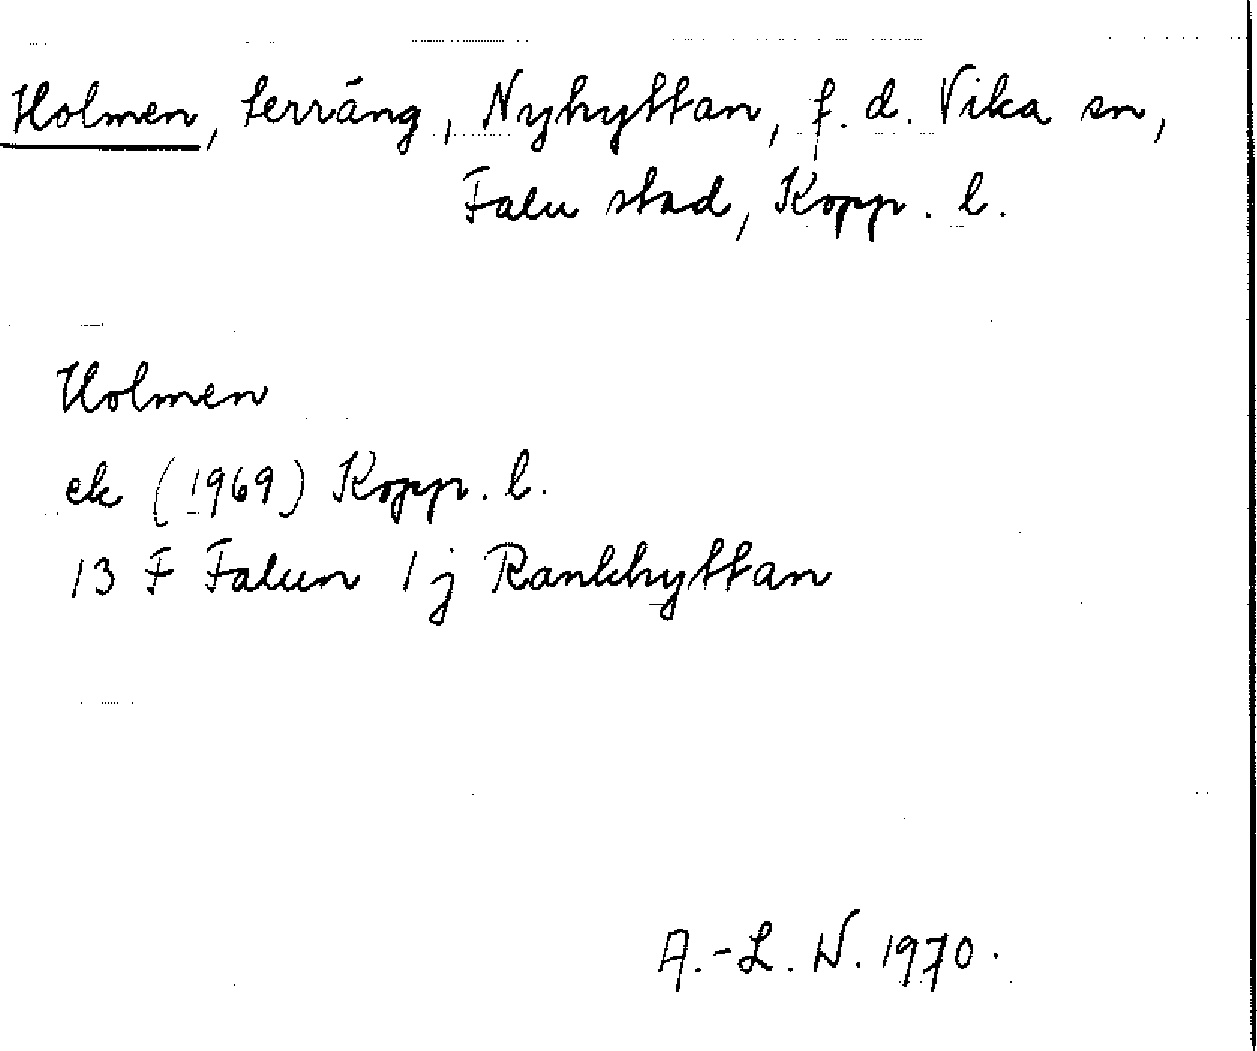 Holmen, terräng, Nyhyttan, f. d. Vika sn,
Falu stad, Kopp. l.
Holmen
ek (1969) Kopp. l.
13 F Falun 1 j Rankhyttan
A.-L. N. 1970.